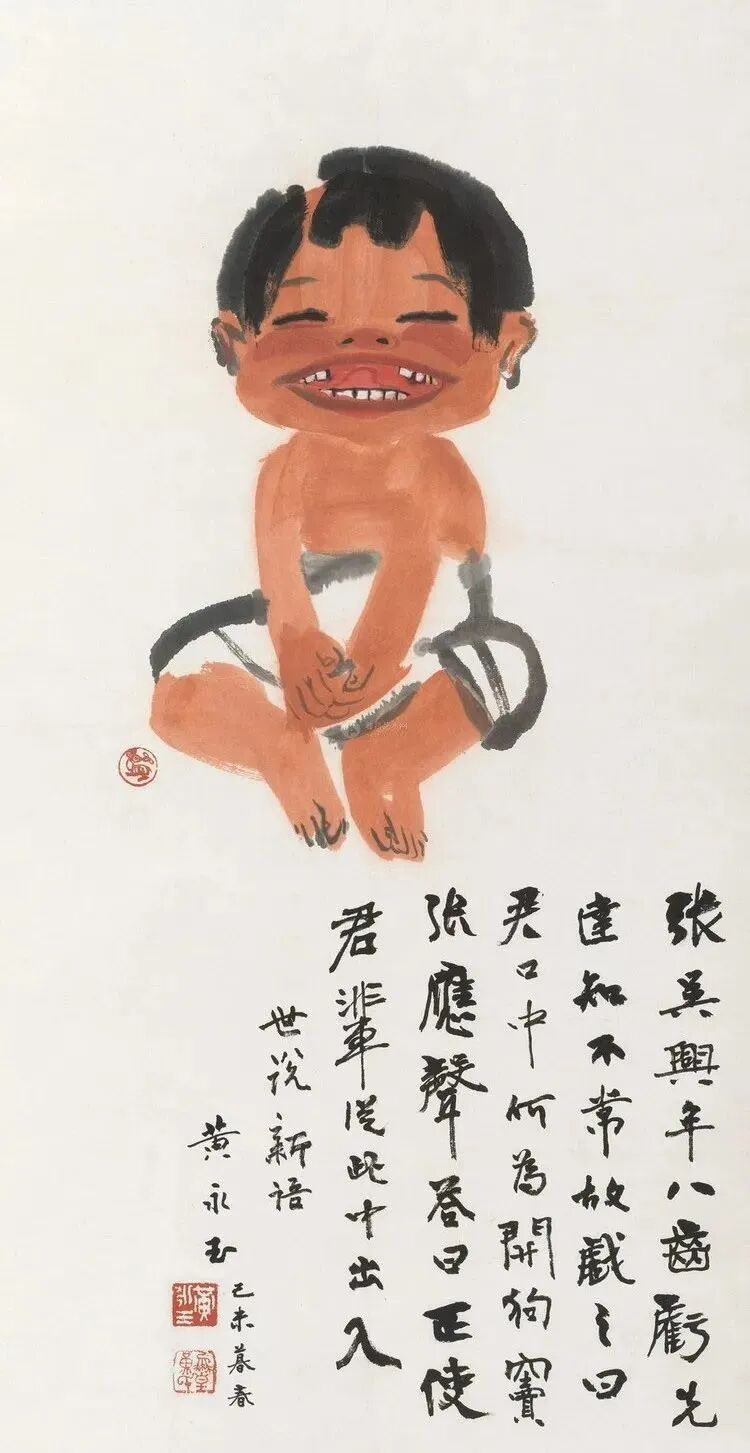 张吴興年八齒虧先
達知不常故戲之曰
君口中何為開狗竇
張應聲答曰正使
君輩從此中出入
世說新語
黄永玉
己未暮春
黄永玉